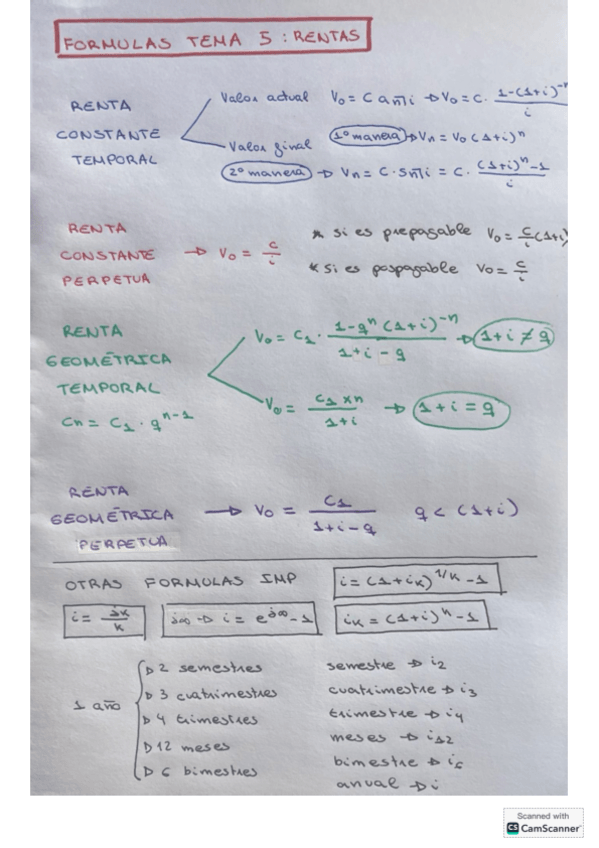 FORMULAS TEMA 5 : RENTAS
RENTA CONSTANTE TEMPORAL
Valor actual V₀ = C aₙ̅i → V₀ = C · (1-(1+i)⁻ⁿ)/i
Valor final 1º manera → Vₙ = V₀ (1+i)ⁿ
2º manera → Vₙ = C · Sₙ̅i = C · ((1+i)ⁿ-1)/i
RENTA CONSTANTE PERPETUA → V₀ = c/i
* si es prepagable V₀ = c/i (1+i)
* si es pospagable V₀ = c/i
RENTA GEOMÉTRICA TEMPORAL
Cn = C₁ · qⁿ⁻¹
V₀ = C₁ · (1-qⁿ(1+i)⁻ⁿ)/(1+i-q) → 1+i ≠ q
V₀ = (C₁ × n)/(1+i) → 1+i = q
RENTA GEOMÉTRICA PERPETUA → V₀ = C₁/(1+i-q) q < (1+i)
OTRAS FORMULAS IMP
i = (1+iₖ)^1/k - 1
i = jk/k
j∞ → i = e^j∞ - 1
iₖ = (1+i)ⁿ - 1
1 año
→ 2 semestres
→ 3 cuatrimestres
→ 4 trimestres
→ 12 meses
→ 6 bimestres
semestre → i₂
cuatrimestre → i₃
trimestre → i₄
meses → i₁₂
bimestre → i₆
anual → i
Scanned with
CS CamScanner